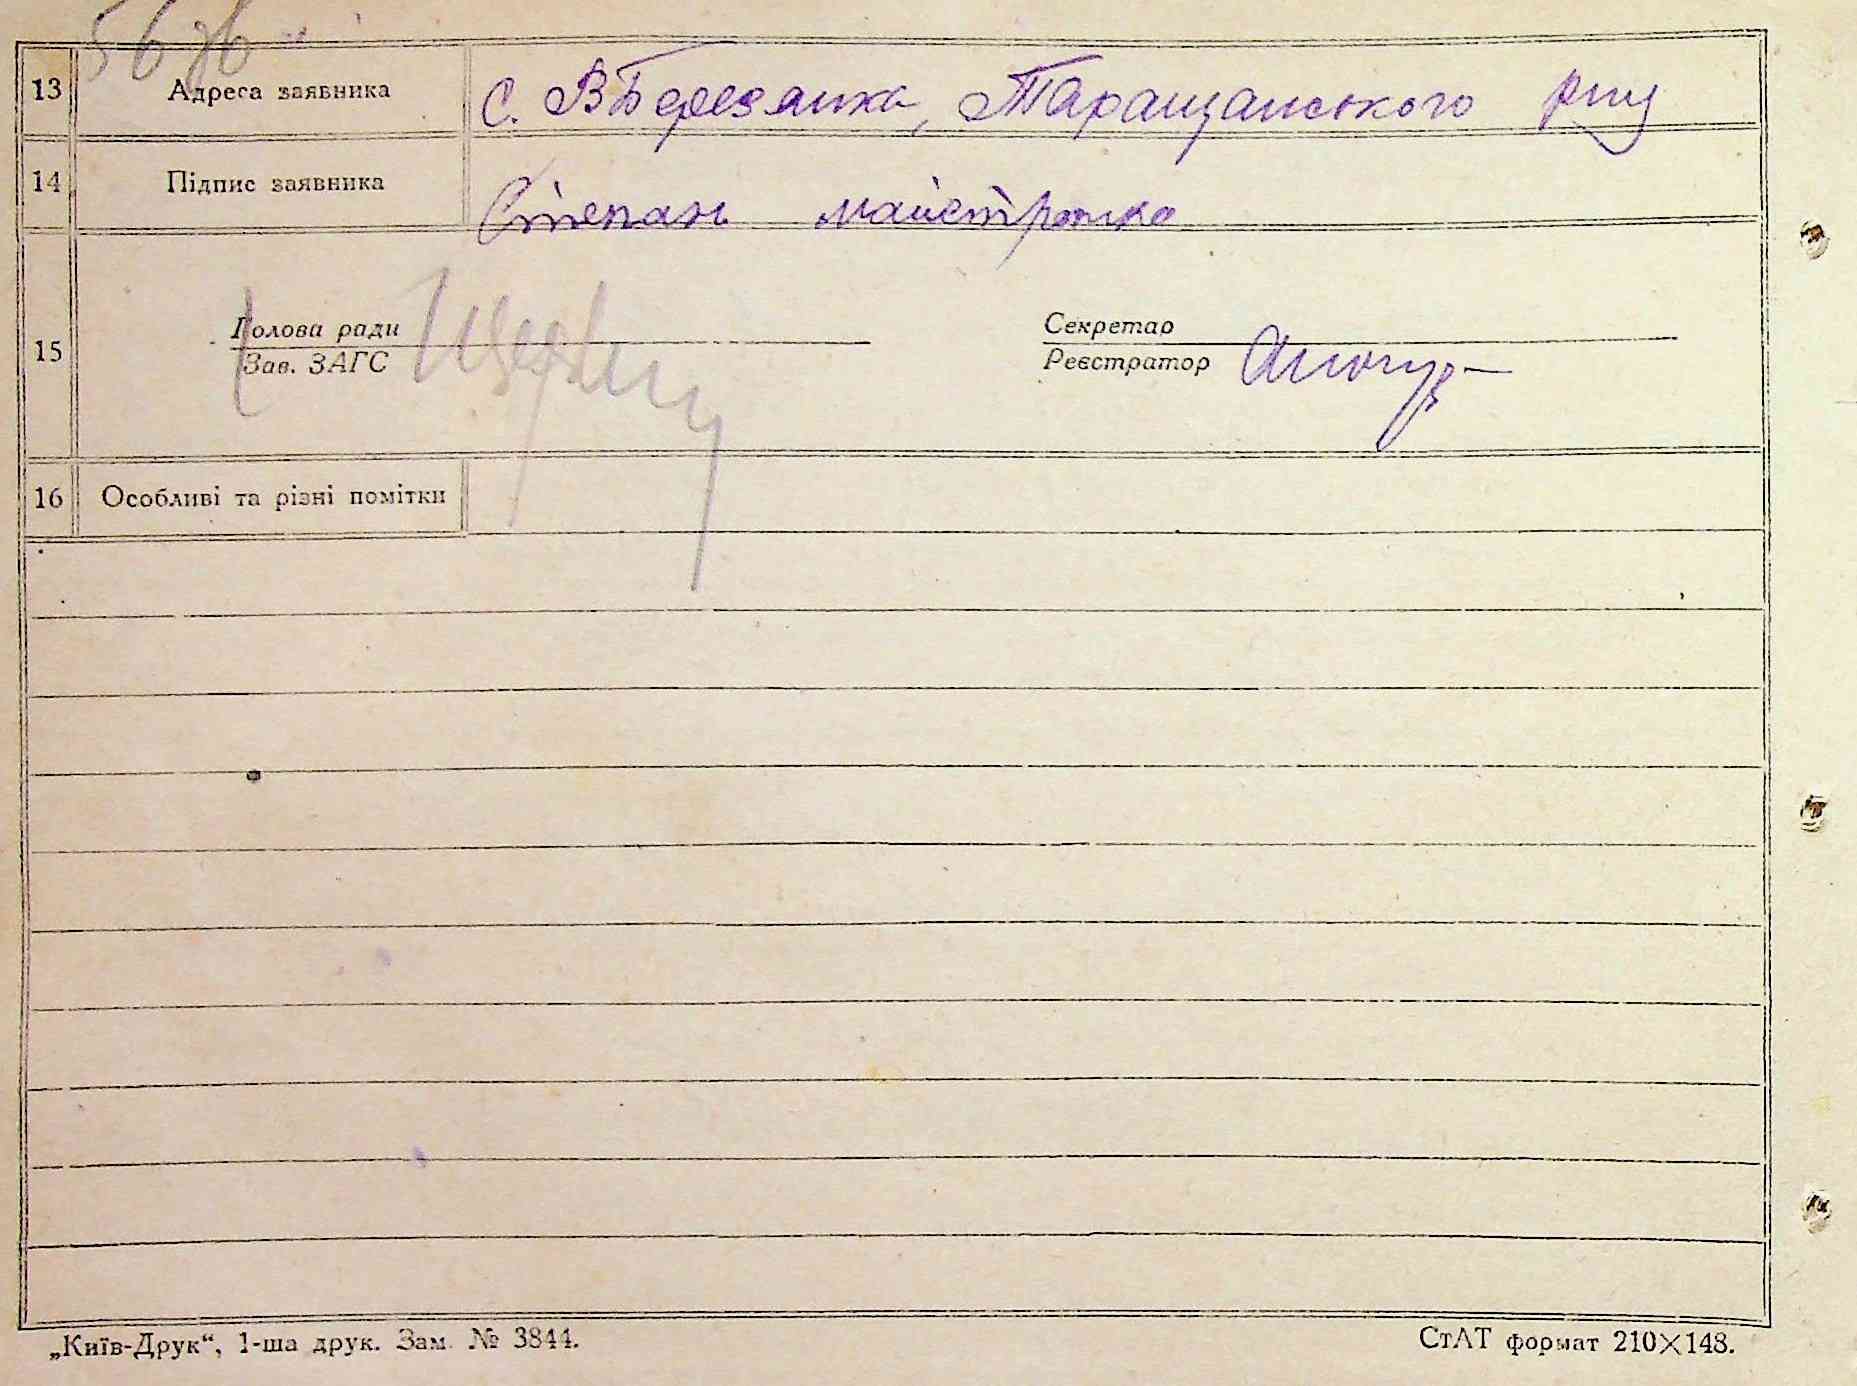 13 Адреса заявника с. ВБерезянка, Таращанського р-ну
14 Підпис заявника Степан майстренко
Голова ради Секретар
15
Зав. ЗАГС Реєстратор
16 Особливі та різні помітки
„Київ-Друк“, 1-ша друк. Зам. № 3844. СтАТ формат 210×148.